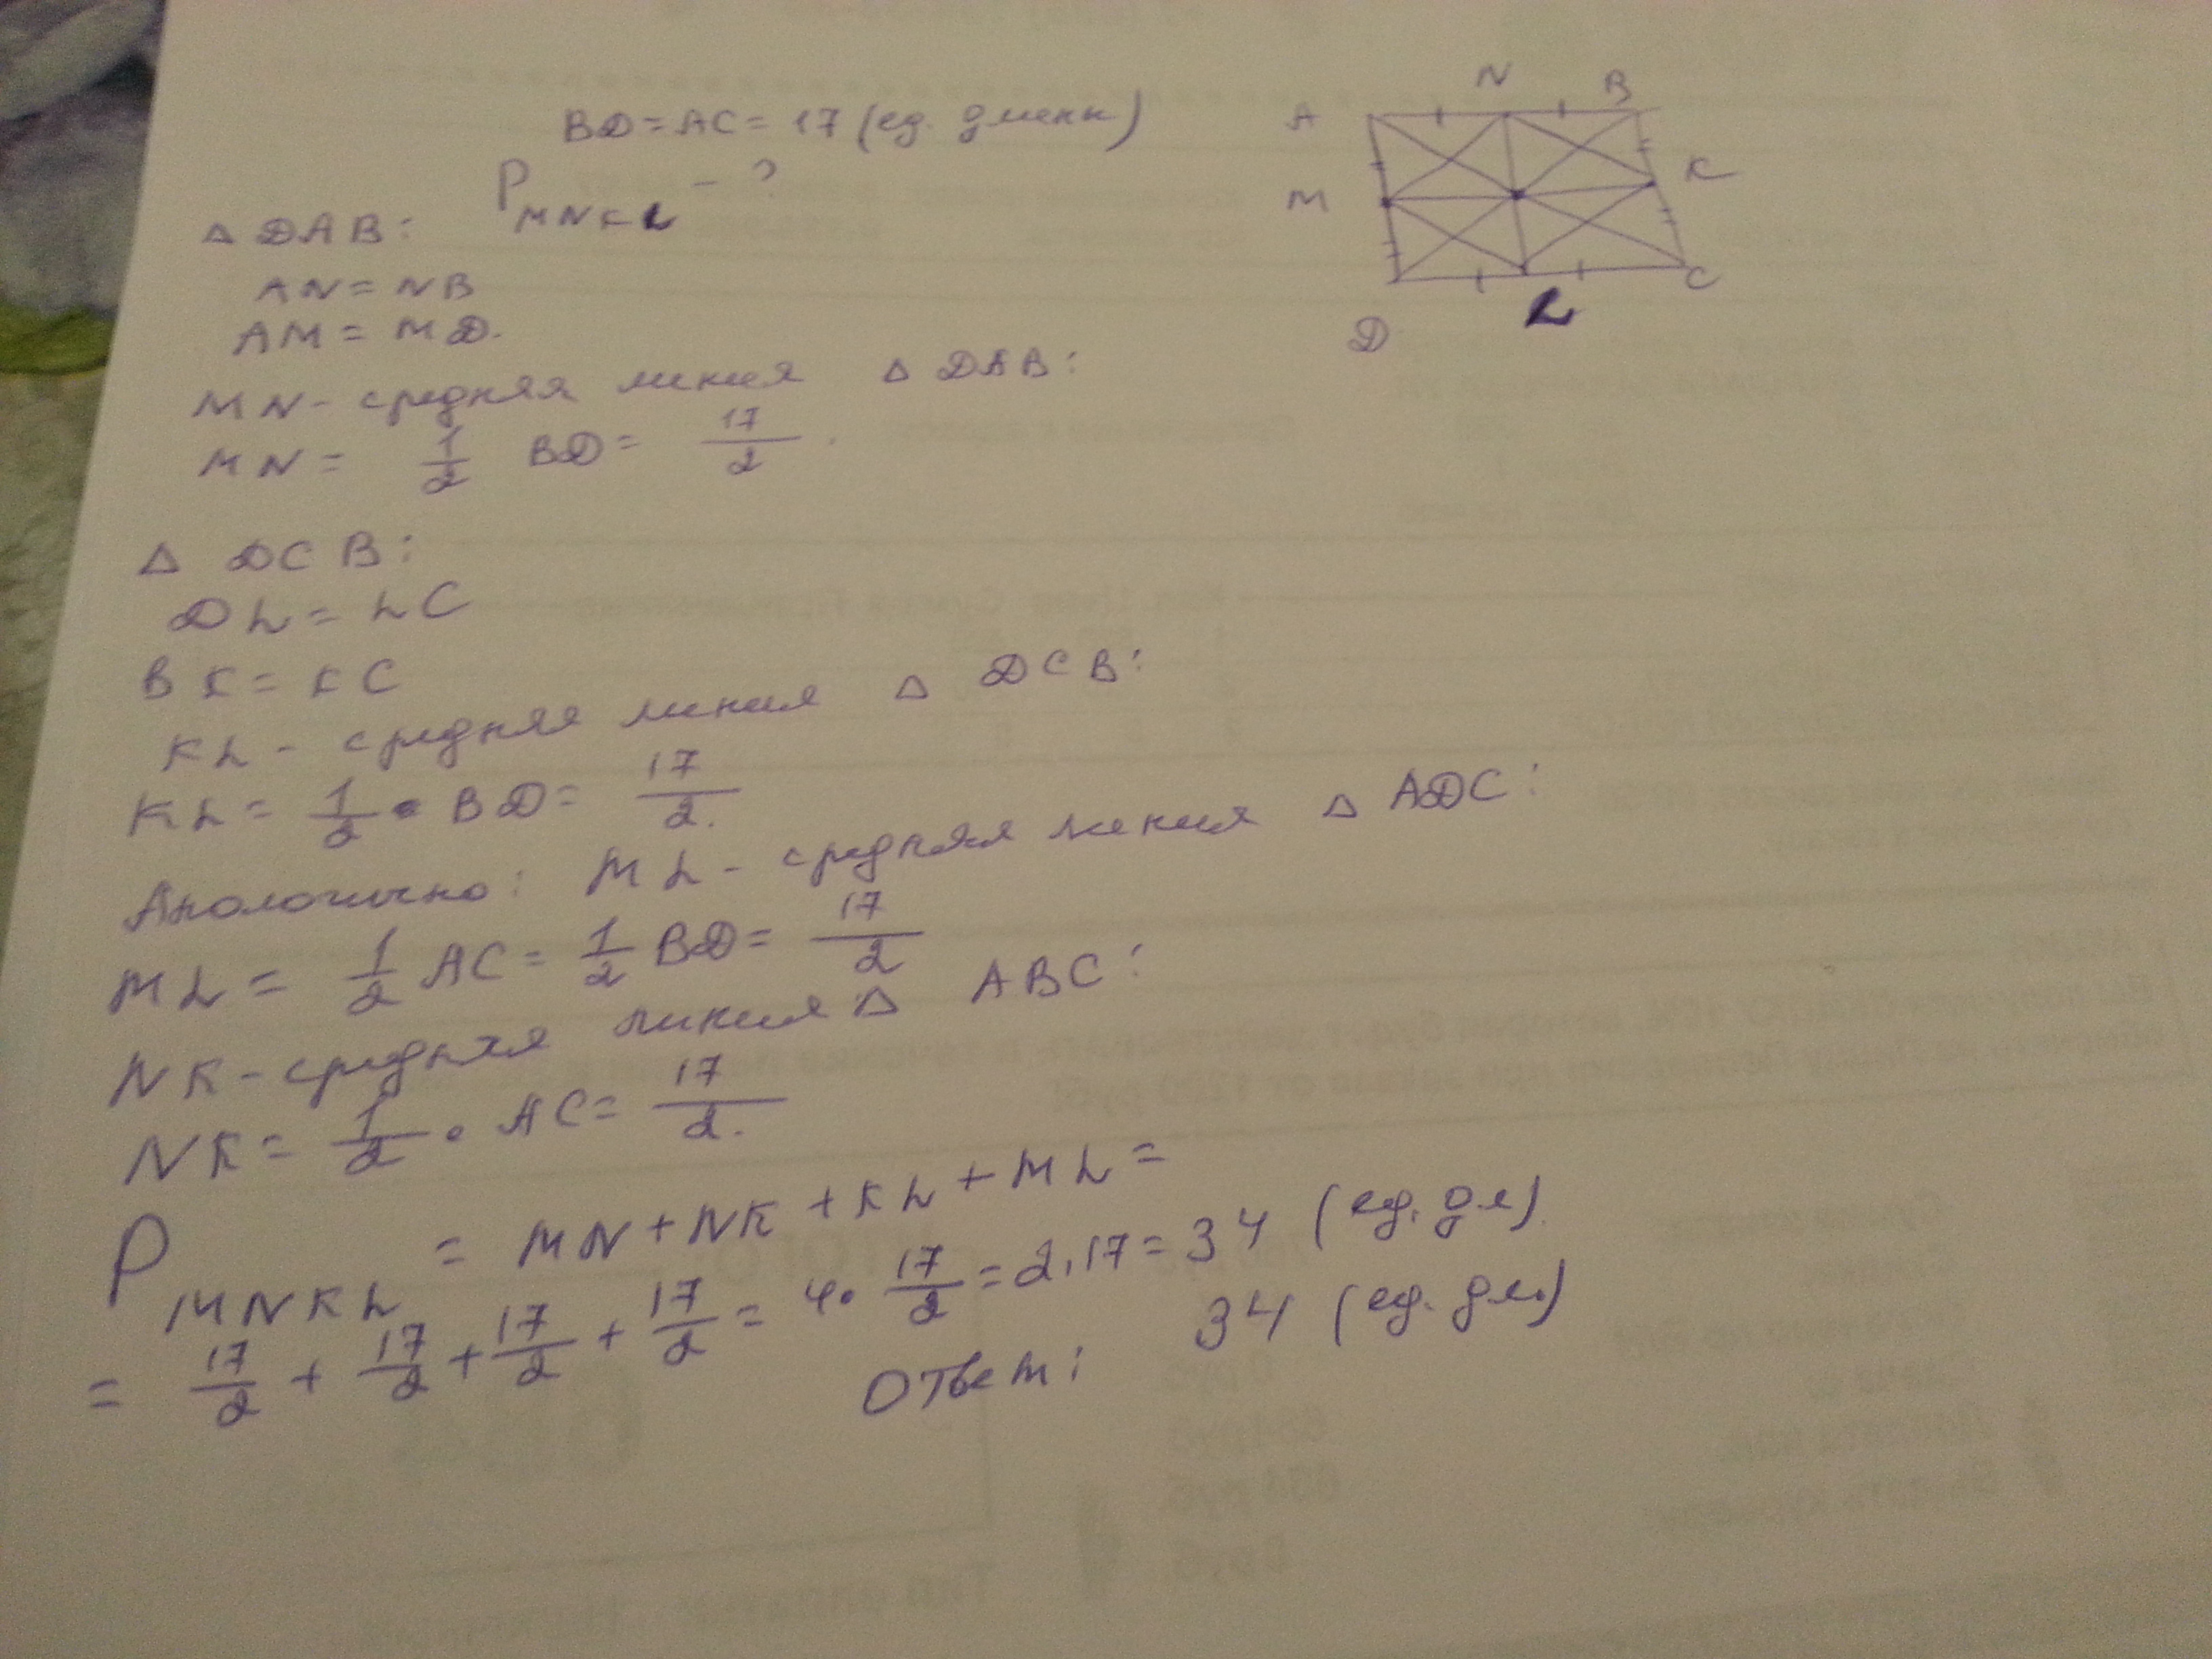 BD = AC = 17 (ед. длины)
P MNKL - ?
A N B
M K
D L C
△ DAB:
AN = NB
AM = MD.
MN - средняя линия △ DAB:
MN = 1/2 BD = 17/2.
△ DCB:
DL = LC
BK = KC
KL - средняя линия △ DCB:
KL = 1/2 • BD = 17/2.
Аналогично: ML - средняя линия △ ADC:
ML = 1/2 AC = 1/2 BD = 17/2
NK - средняя линия △ ABC:
NK = 1/2 • AC = 17/2.
P MNKL = MN + NK + KL + ML =
= 17/2 + 17/2 + 17/2 + 17/2 = 4 • 17/2 = 2 . 17 = 34 (ед. дл).
Ответ: 34 (ед. дл.)